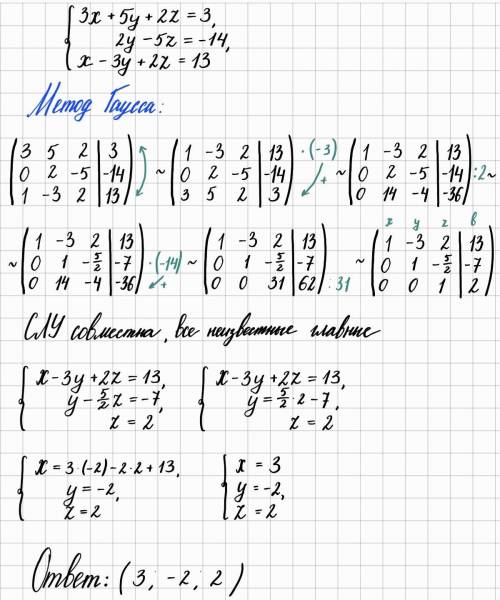 3x + 5y + 2z = 3,
2y − 5z = −14,
x − 3y + 2z = 13
Метод Гаусса:
(3 5 2 | 3; 0 2 −5 | −14; 1 −3 2 | 13) ~ (1 −3 2 | 13; 0 2 −5 | −14; 3 5 2 | 3) ·(−3) + ~ (1 −3 2 | 13; 0 2 −5 | −14; 0 14 −4 | −36) :2 ~
x y z в
~ (1 −3 2 | 13; 0 1 −5/2 | −7; 0 14 −4 | −36) ·(−14) + ~ (1 −3 2 | 13; 0 1 −5/2 | −7; 0 0 31 | 62) :31 ~ (1 −3 2 | 13; 0 1 −5/2 | −7; 0 0 1 | 2)
СЛУ совместна, все неизвестные главные
x − 3y + 2z = 13, x − 3y + 2z = 13,
y − 5/2 z = −7, y = 5/2 · 2 − 7,
z = 2 z = 2
x = 3·(−2) − 2·2 + 13, x = 3
y = −2, y = −2,
z = 2 z = 2
Ответ: (3; −2; 2)